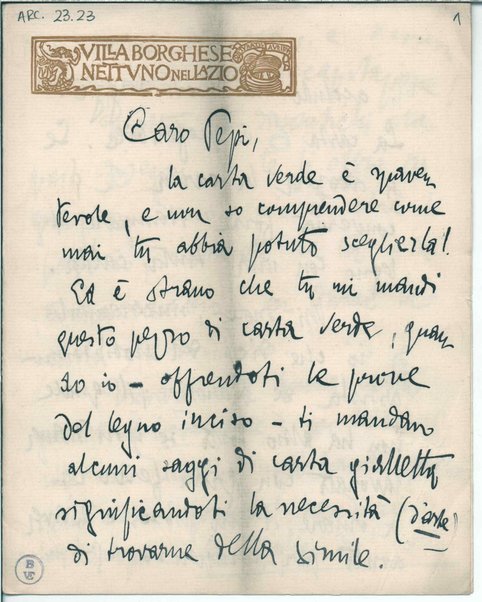 ARC. 23.23
1
VILLA BORGHESE
NETTVNO NEL LAZIO
Caro Pepi,
la carta verde è spaven
tevole, e non so comprendere come
mai tu abbia potuto sceglierla!
Ed è strano che tu mi mandi
questo pezzo di carta verde, quan
do io – offrendoti le prove
del legno inciso – ti mandavo
alcuni saggi di carta gialletta
significandoti la necessità (d'arte)
di trovarne della simile.